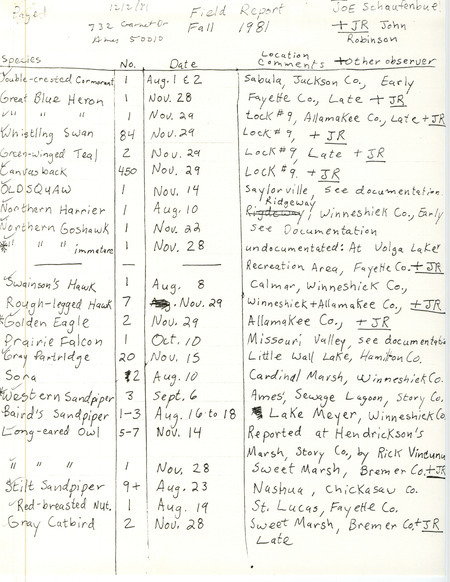 Paged 12/2/81 Field Report JOE Schaufenbuel
732 Garnet Dr Fall 1981 +JR John
Ames 50010 Robinson
Species No. Date Location Comments +Other observer
Double-crested Cormorant 1 Aug. 1 & 2 Sabula, Jackson Co., Early
Great Blue Heron 1 Nov. 28 Fayette Co., Late +JR
" " " 1 Nov. 29 Lock #9, Allamakee Co., Late +JR
Whistling Swan 84 Nov. 29 Lock #9, +JR
Green-winged Teal 2 Nov. 29 Lock #9, Late +JR
Canvasback 450 Nov. 29 Lock #9. +JR
OLDSQUAW 1 Nov. 14 Saylorville, see documentation.
Northern Harrier 1 Aug. 10 Ridgeway, Winneshiek Co., Early
Northern Goshawk 1 Nov. 22 See Documentation
*" " " immature 1 Nov. 28 undocumented: At Volga Lake
Recreation Area, Fayette Co. +JR
Swainson's Hawk 1 Aug. 8 Calmar, Winneshiek Co.,
Rough-legged Hawk 7 Nov. 29 Winneshiek + Allamakee Co., +JR
*Golden Eagle 2 Nov. 29 Allamakee Co., +JR
Prairie Falcon 1 Oct. 10 Missouri Valley, see documentatio
Gray Partridge 20 Nov. 15 Little Wall Lake, Hamilton Co.
Sora 2 Aug. 10 Cardinal Marsh, Winneshiek Co.
*Western Sandpiper 3 Sept. 6 Ames, Sewage Lagoon, Story Co.
Baird's Sandpiper 1-3 Aug. 16 to 18 Lake Meyer, Winneshiek Co.
Long-eared Owl 5-7 Nov. 14 Reported at Hendrickson's
Marsh, Story Co, by Rick
" " " 1 Nov. 28 Sweet Marsh, Bremer Co. +JR
Stilt Sandpiper 9+ Aug. 23 Nashua, Chickasaw Co.
Red-breasted Nut. 1 Aug. 19 St. Lucas, Fayette Co.
Gray Catbird 2 Nov. 28 Sweet Marsh, Bremer Co. +JR
Late